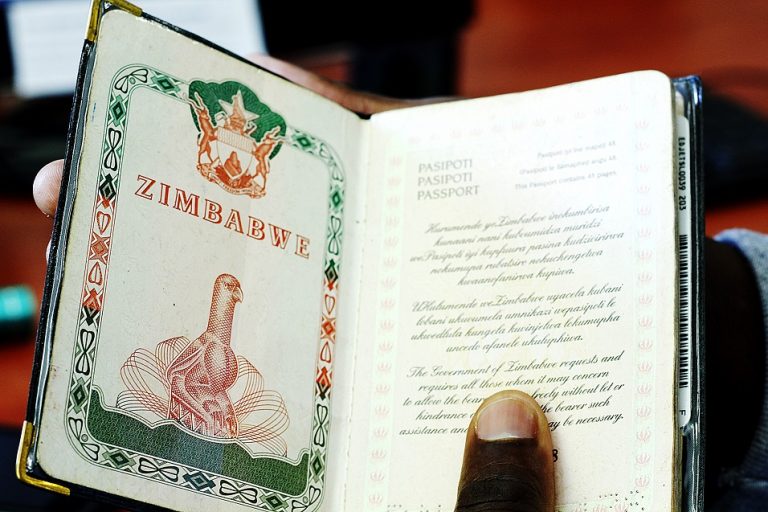 ZIMBABWE
PASIPOTI
PASIPOTI
PASSPORT
This Passport contains 48 pages.
Hurumende yeZimbabwe inokumbirisa
kunaani nani kubvumidza muridzi
wePasipoti iyi kupfuura pasina kudzivirirwa
nokumupa rubatsiro nokuchengetwa
kwaanofanirwa kupiwa.
UHulumende weZimbabwe uyacela kubani
lobani ukuvumela umnikazi wepasipoti le
ukwedlula kungela kuvinjelwa lokumupha
uncedo afanele ukuluphiwa.
The Government of Zimbabwe requests and
requires all those whom it may concern
to allow the bearer freely without let or
hindrance the bearer such
assistance and may be necessary.